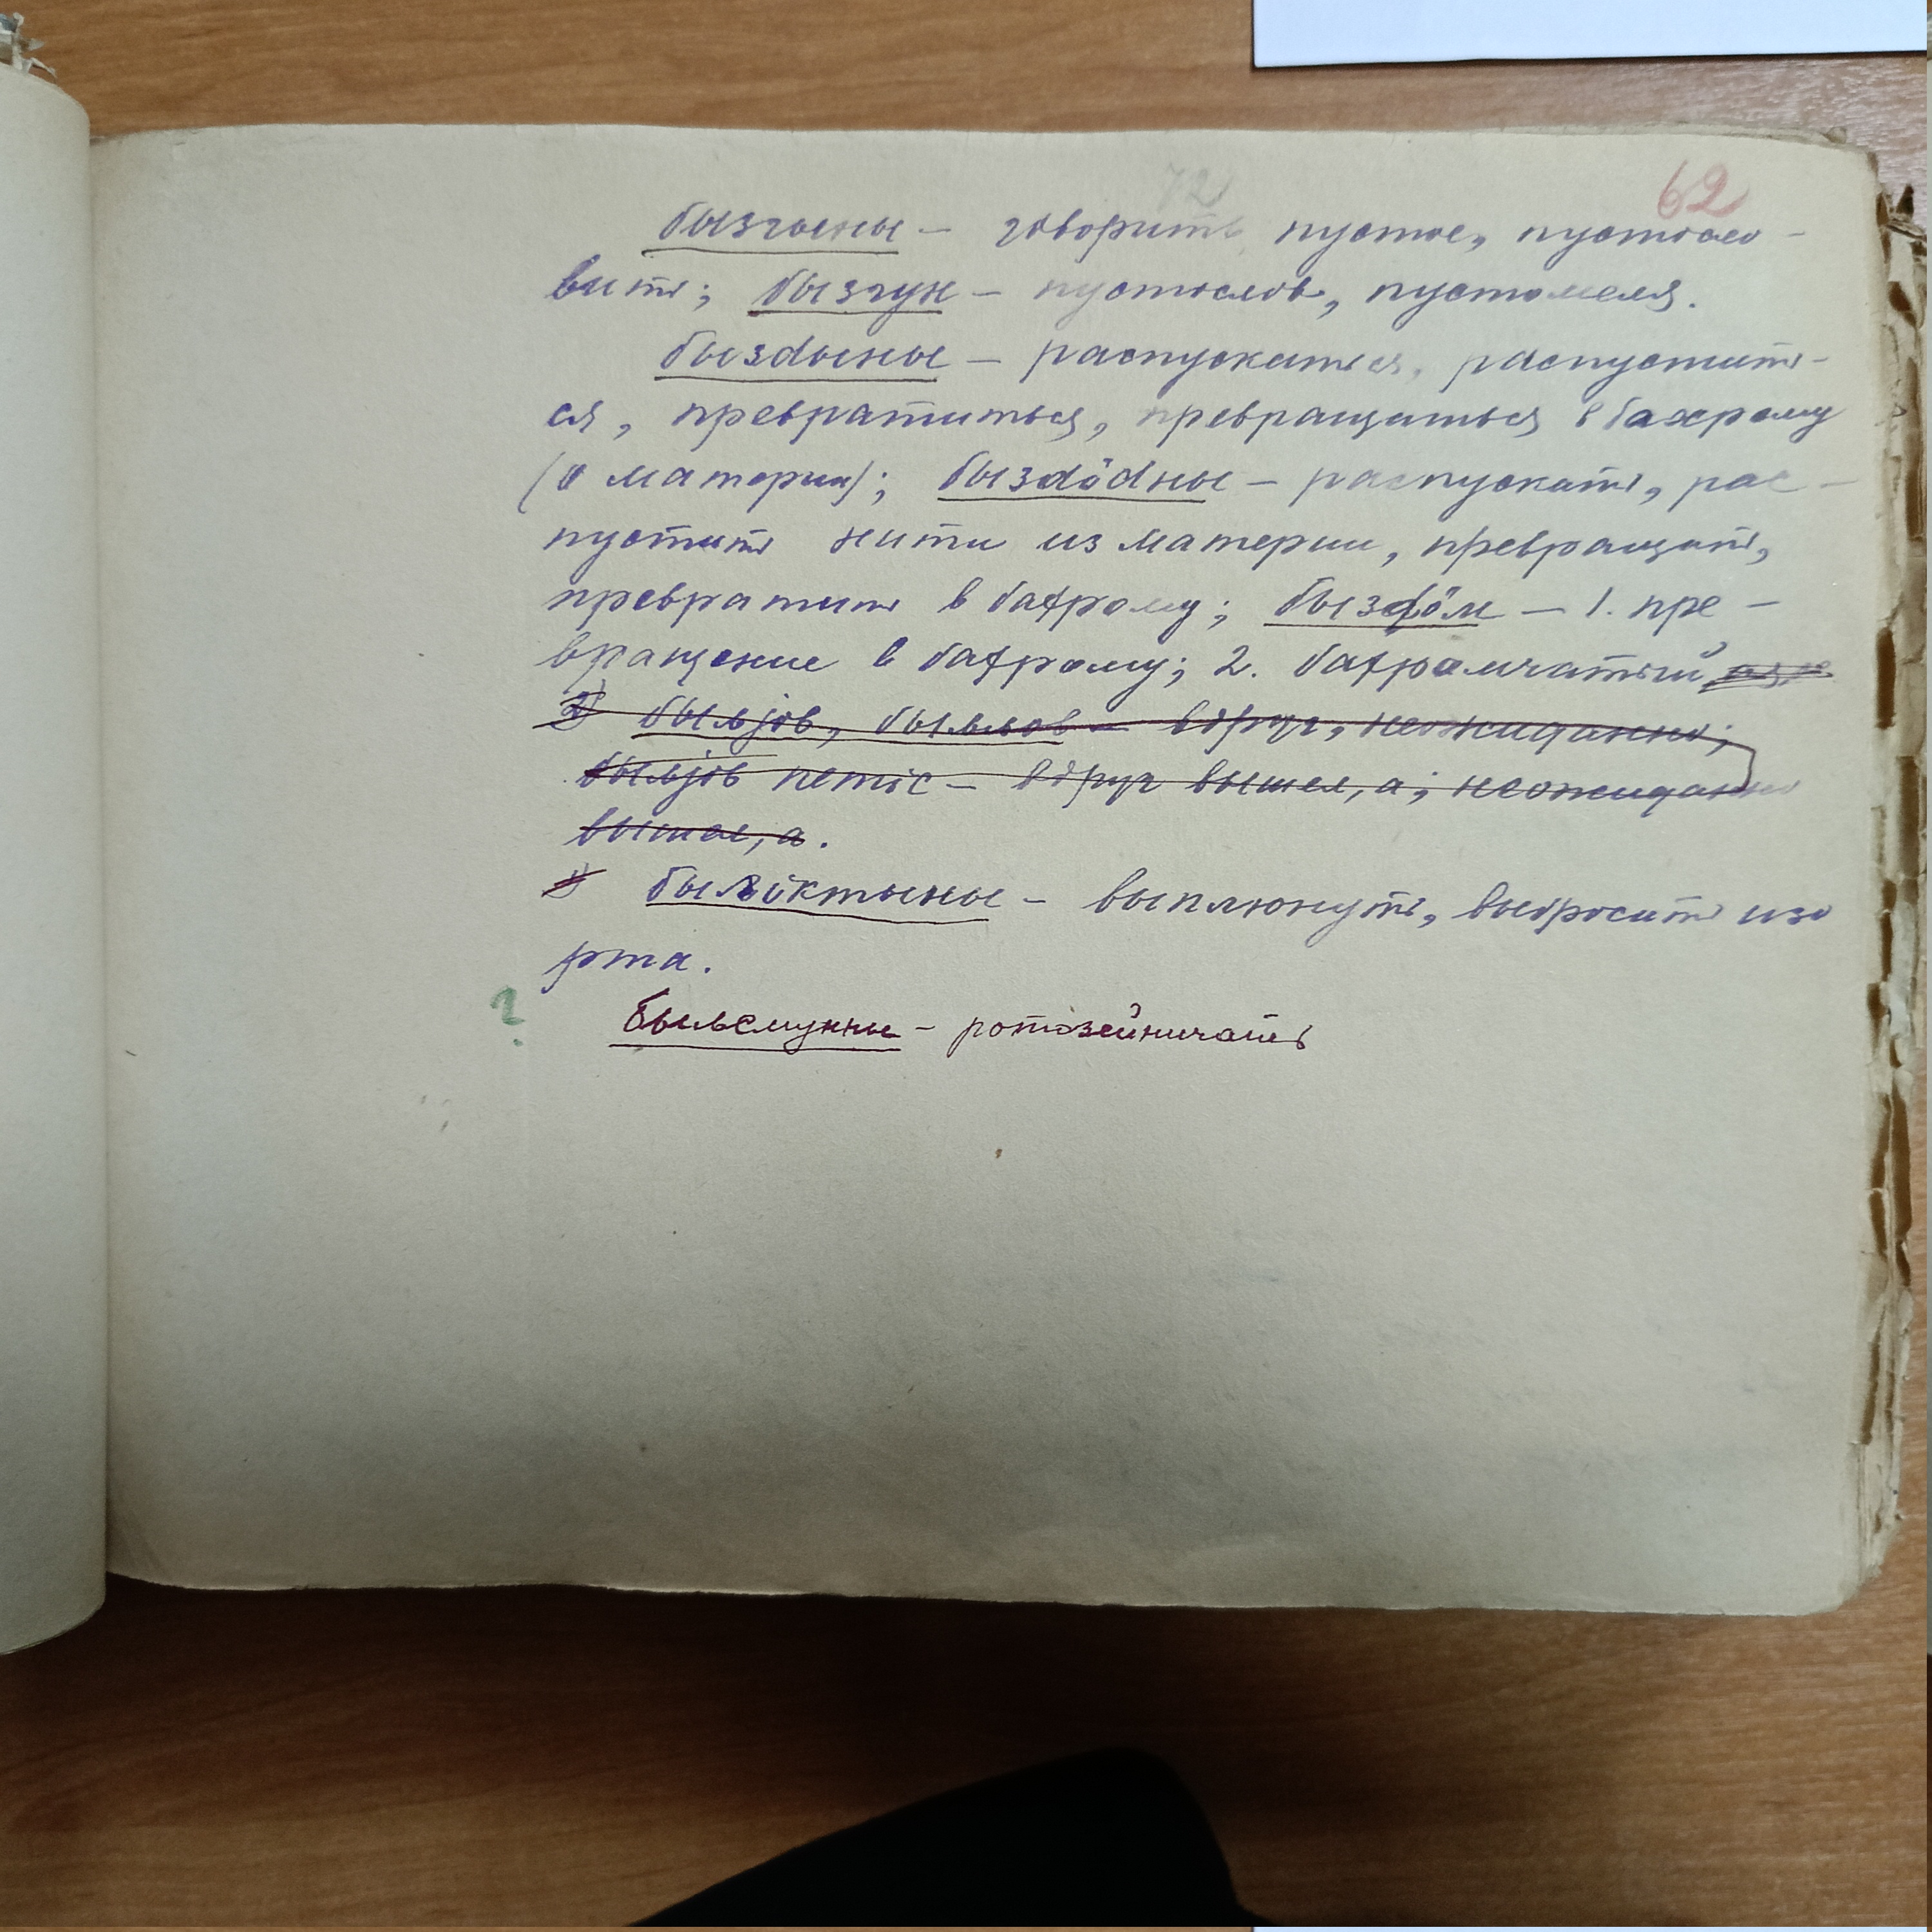 72 62
бызгыны – говорить пустое, пустосло-
вить; бызгун – пустослов, пустомеля.
бызdыны – распускаться, распустить-
ся, превратиться, превращаться в бахрому
(о материи); бызdödны – распускать, рас-
пустить нити из материи, превращать,
превратить в бахрому; бызdöм – 1. пре-
вращение в бахрому; 2. бахромчатый
2) быльjöв, быльлов – вдруг, неожиданно;
быльjöв петiс – вдруг вышел, а; неожиданно
вышел, а.
1) быльöктыны – выплюнуть, выбросить изо
рта.
? быльсмунны – ротозейничать